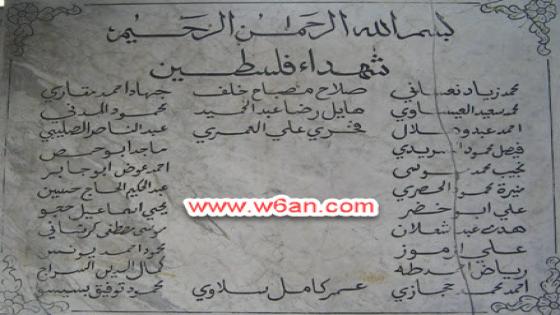 بسم الله الرحمن الرحيم
شهداء فلسطين
محمد زياد نعساني صلاح مصباح خلف جهاد احمد مقاري
محمد سعيد العيساوي هايل رضا عبد الحميد محمود المدني
احمد عبدو هلال فخري علي العمري عبد الناصر الصليبي
فيصل محمود ماجد ابو حص
نجيب محمد موسى احمد عوض ابو جابر
منيرة محمود الحصري عبد الحكيم الحاج حسين
علي ابو خضر يحيى اسماعيل حجو
www.w6an.com
هدى عبد شعلان موسى مصطفى
علي ارموز محمود احمد يونس
رياض احمد طه كمال الدين السراج
احمد محمد حجازي عمر كامل سلاوي محمود توفيق بسيسو